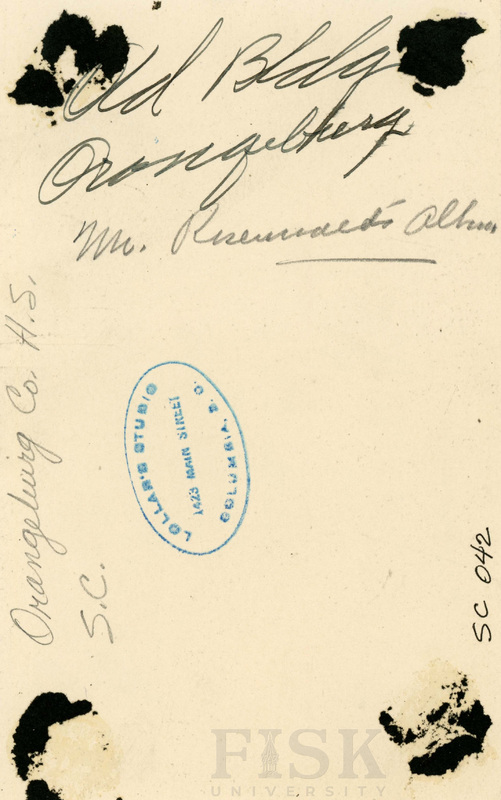 Old Bldg
Orangeburg
Mr. Rosenwald's Album
Orangeburg Co. H.S.
S.C.
LOLLAR'S STUDIO
1423 MAIN STREET
COLUMBIA, S. C.
SC 042
FISK
UNIVERSITY